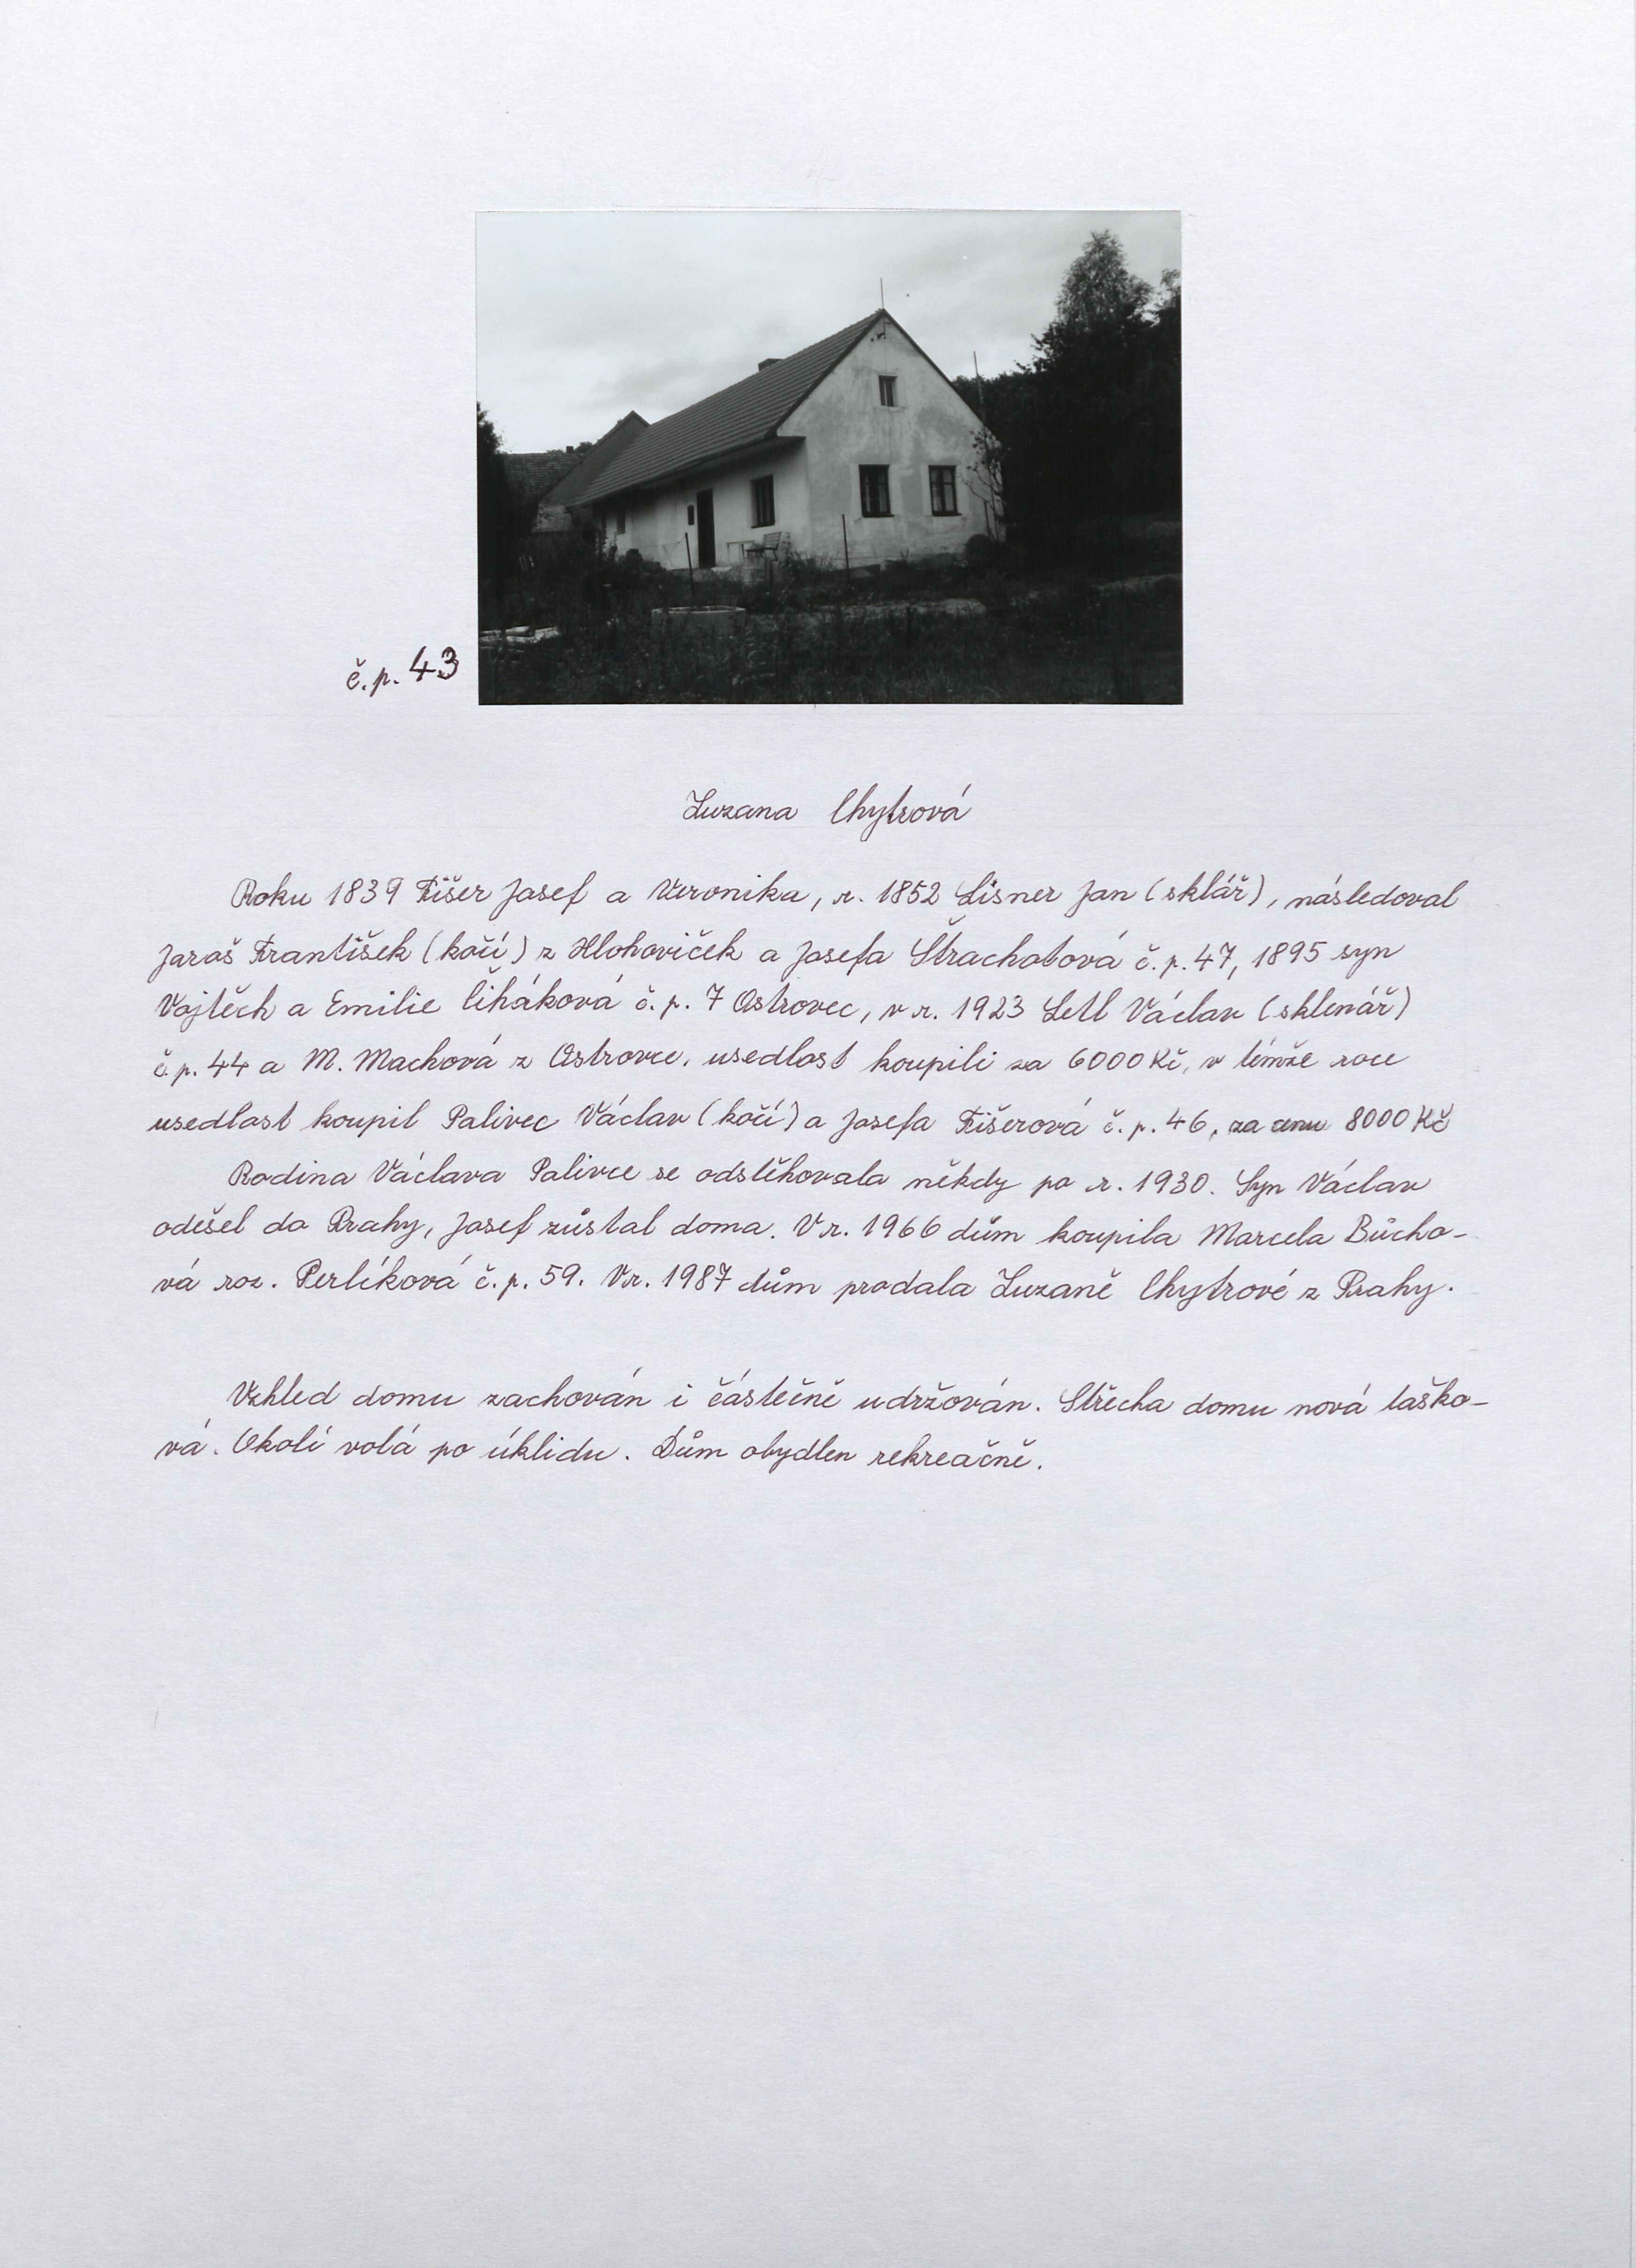 č.p. 43
Zuzana Chytrová
Roku 1839 Fišer Josef a Veronika, r. 1852 Lisner Jan (sklář), následoval
Jaroš František (kočí) z Hlohoviček a Josefa Strachotová č.p. 47, 1895 syn
Vojtěch a Emilie Čiháková č.p. 7 Ostrovec, v r. 1923 Letl Václav (sklenář)
č.p. 44 a M. Machová z Ostrovce, usedlost koupili za 6000 Kč, v témže roce
usedlost koupil Palivec Václav (kočí) a Josefa Fišerová č.p. 46, za cenu 8000 Kč
Rodina Václava Palivce se odstěhovala někdy po r. 1930. Syn Václav
odešel do Prahy, Josef zůstal doma. V r. 1966 dům koupila Marcela Bůcho-
vá roz. Perlíková č.p. 59. V r. 1987 dům prodala Zuzaně Chytrové z Prahy.
Vzhled domu zachován i částečně udržován. Střecha domu nová taško-
vá. Okolí volá po úklidu. Dům obydlen rekreačně.